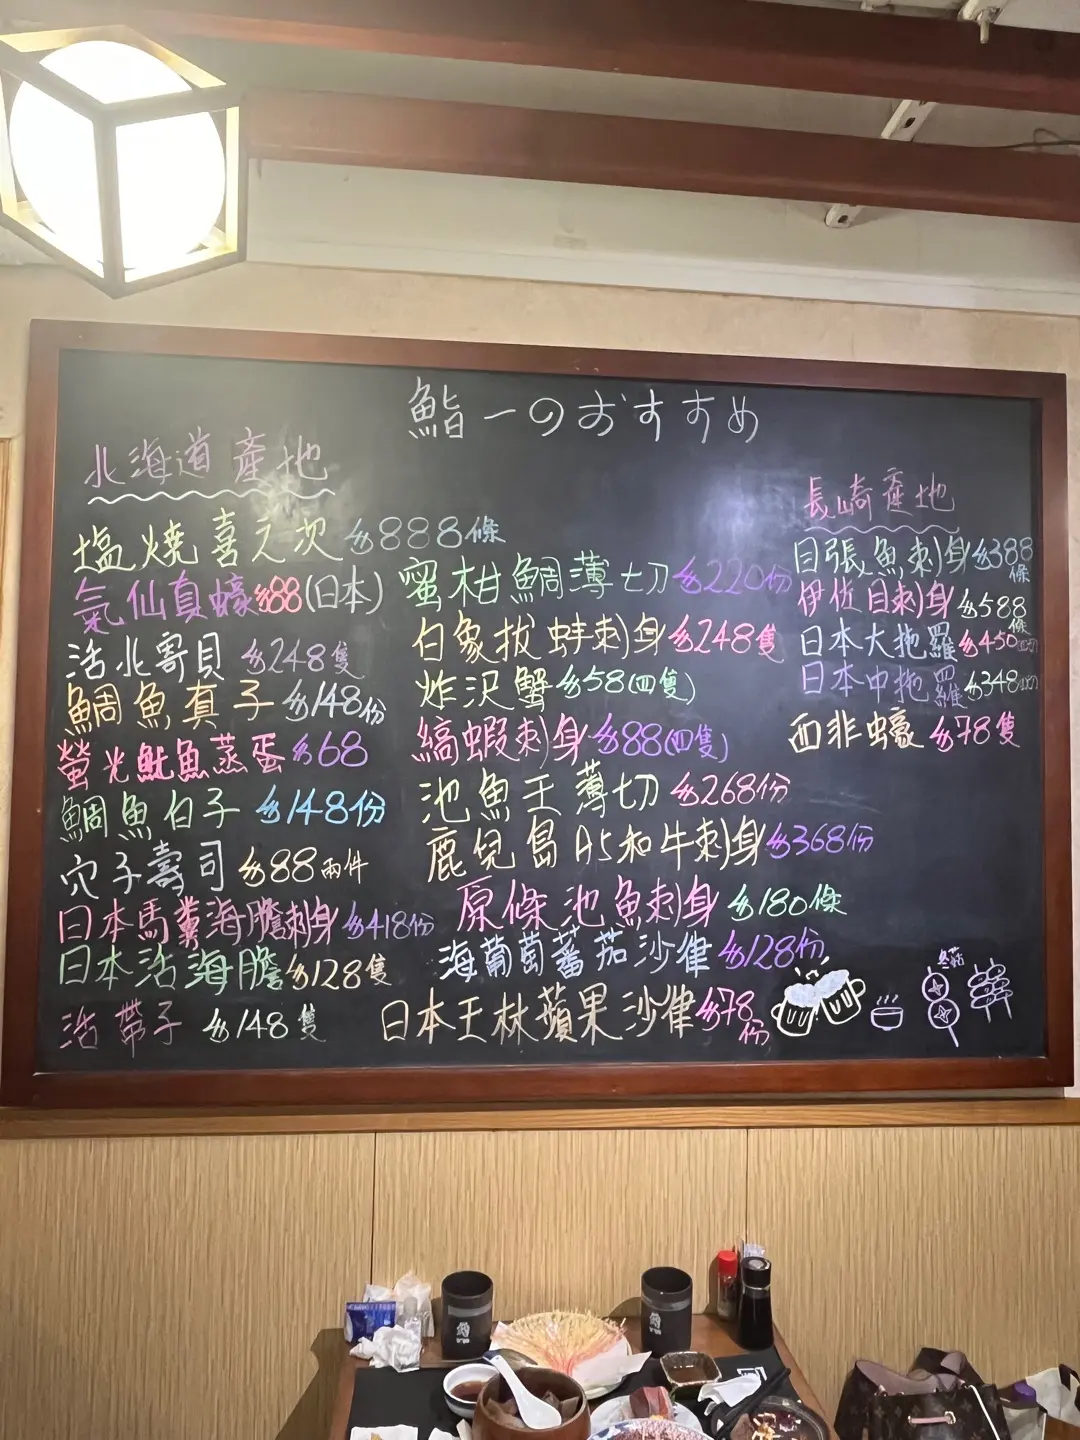 鮨一のおすすめ
北海道產地
塩燒喜之次 $888條
氣仙真蠔 $88(日本)
活北寄貝 $248隻
鯛魚真子 $148份
螢光魷魚蒸蛋 $68
鯛魚白子 $148份
穴子壽司 $88兩件
日本馬糞海膽刺身 $418份
日本活海膽 $128隻
活帶子 $148隻
蜜柑鯛薄切 $220份
白象拔蚌刺身 $248隻
炸沢蟹 $58(四隻)
縞蝦刺身 $88(四隻)
池魚王薄切 $268份
鹿兒島A5和牛刺身 $368份
原條池魚刺身 $180條
海葡萄蕃茄沙律 $128份
日本王林蘋果沙律 $78份
長崎產地
目張魚刺身 $388條
伊佐目刺身 $588條
日本大拖羅 $450
日本中拖羅 $348
西非蠔 $78隻